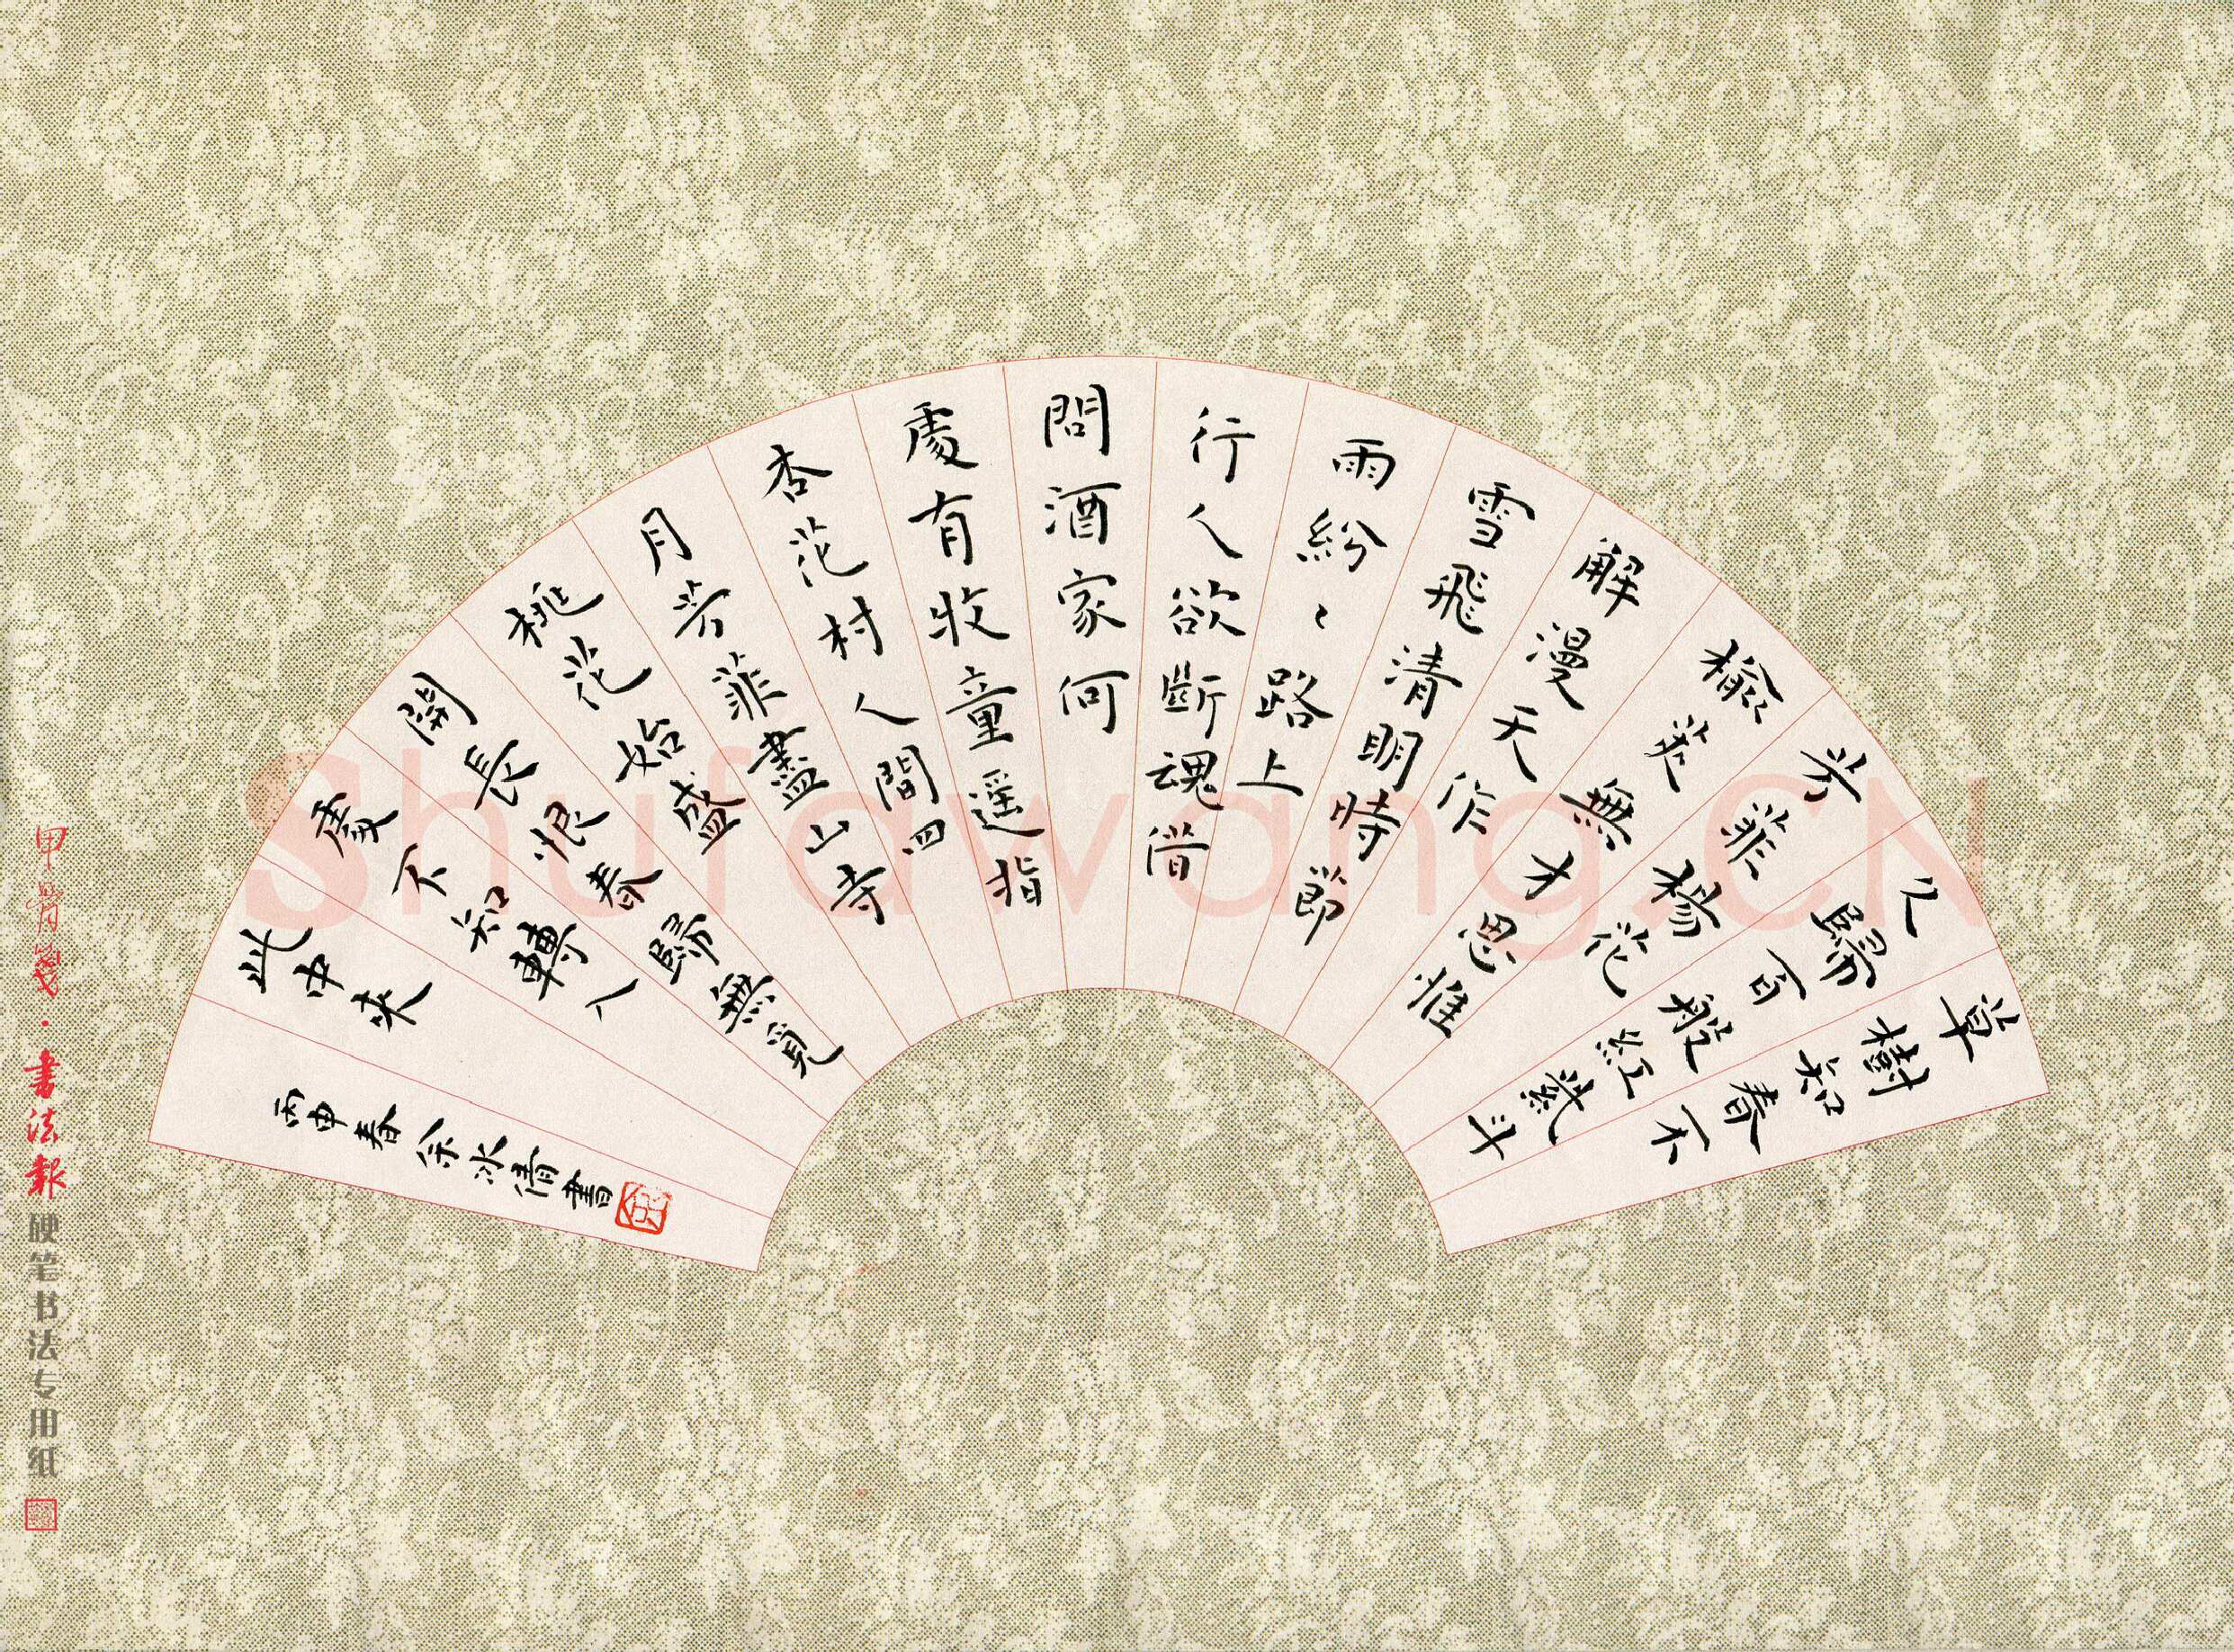 草樹知春不
久歸百般紅紫斗
芳菲楊花
榆莢無才思惟
解漫天作
雪飛清明時節
雨紛々路上
行人欲斷魂借
問酒家何
處有牧童遥指
杏花村人間四
月芳菲盡山寺
桃花始盛
開長恨春歸無覓
處不知轉入
此中來
丙申春余冰倩書
甲骨箋·書法報 硬笔书法专用纸
Shufawang.CN